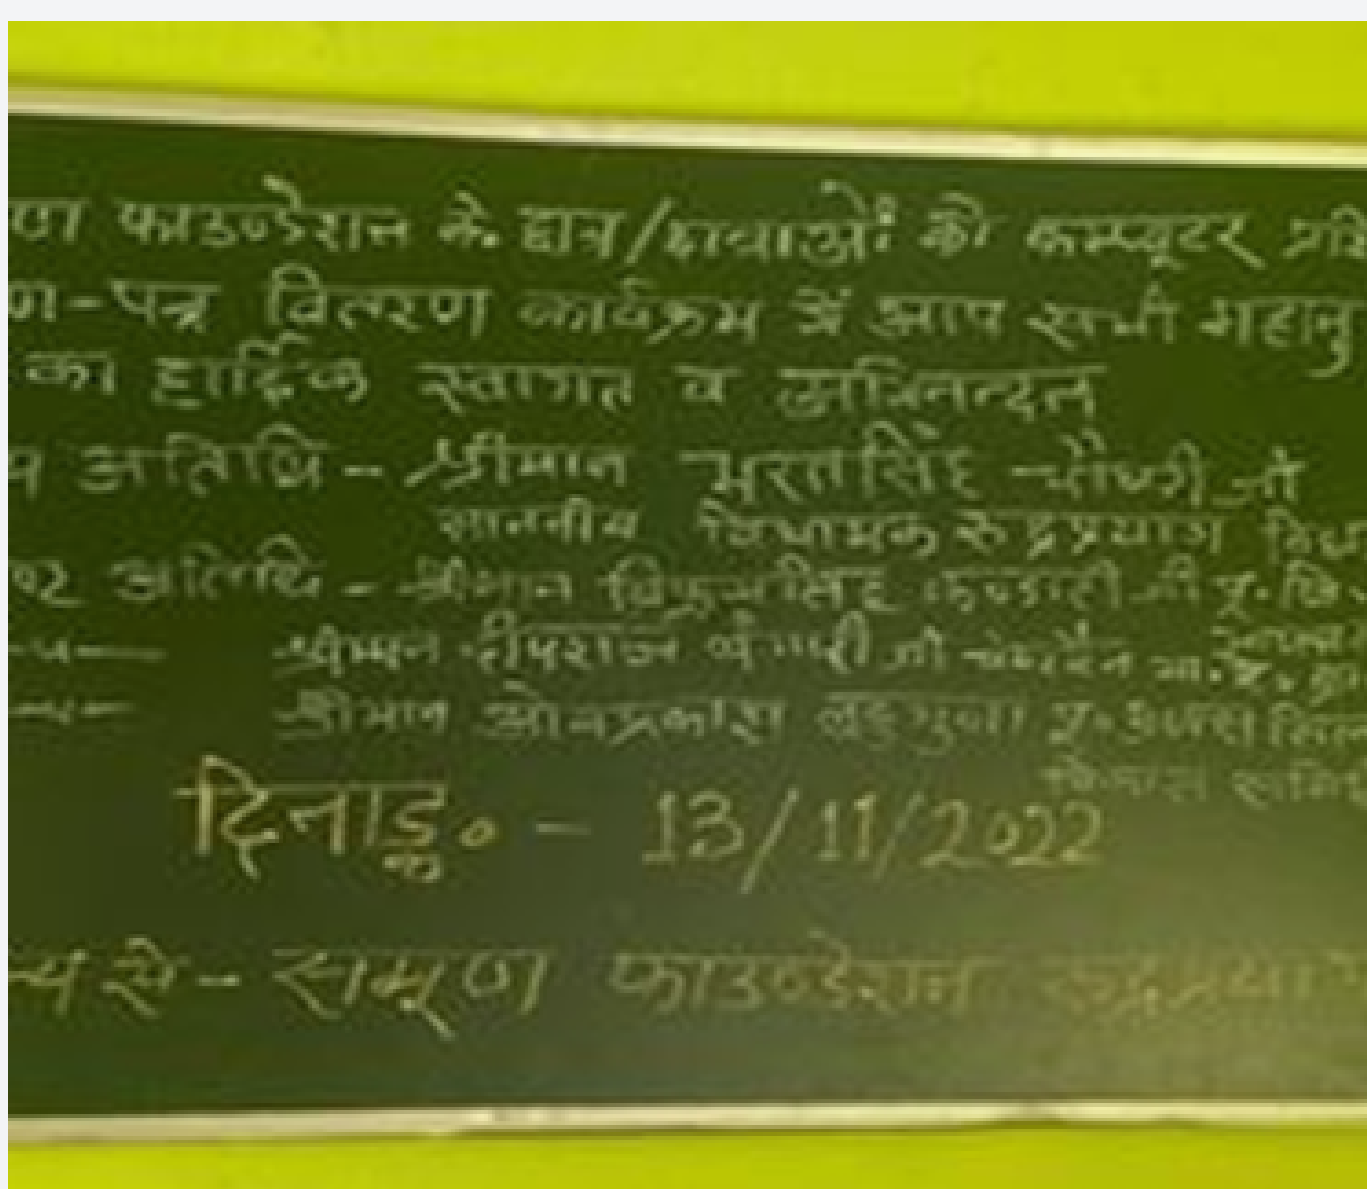 ूण फाउण्डेशन के छात्र/छात्राओं को कम्प्यूटर प्रशि
ण-पत्र वितरण कार्यक्रम में आप सभी महानु
का हार्दिक स्वागत व अभिनन्दन
य अतिथि - श्रीमान भरतसिंह चौधरी जी
माननीय विधायक रुद्रप्रयाग विधा
अतिथि - श्रीमान विक्रमसिंह कण्डारी जी पू.
श्रीमान दीपराज बंगारी जी
श्रीमान ओमप्रकाश बहुगुणा पू.
दिनाङ्क - 13/11/2022
से - समूण फाउण्डेशन रुद्रप्रयाग